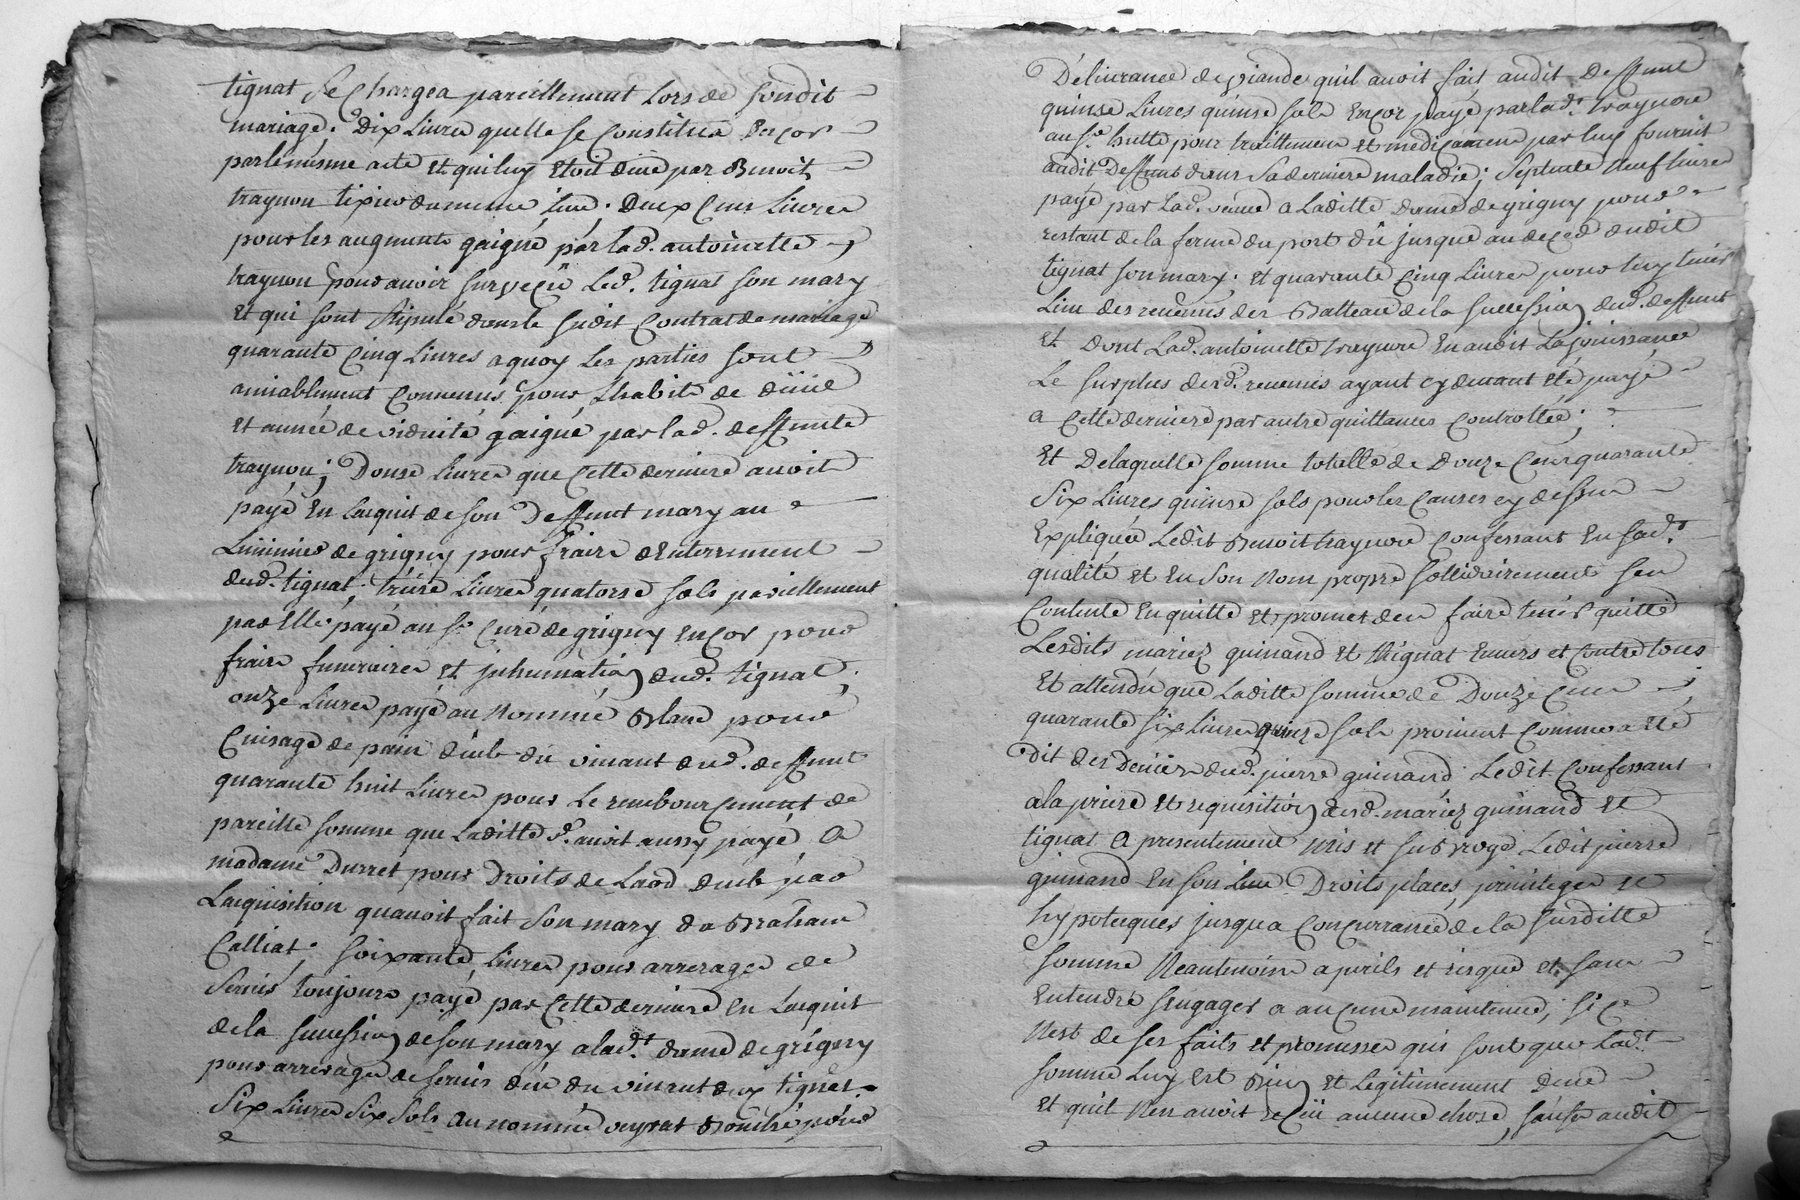 tignat se chargea pareillement lors de sondit
mariage. Dix livres quelle se constitua encor
par le mesme acte et qui luy etoit deüe par Benoit
traynon tixier du meme lieu. Deux cens livres
pour les augments gaigné par lad. antoinette
traynon pour avoir survecü led. tignat son mary
et qui sont stipulé dans le sudit contrat de mariage
quarante cinq livres a quoy les parties sont
amiablement convenus pour lhabit de düil
et année de viduité gaigné par lad. deffunte
traynon; Douse livres que cette derniere avoit
payé en lacquit de son deffunt mary au
luminier de grigny pour frais denterrement
dud. tignat; treise livres quatorse sols pareillement
par elle payé au sr. curé de grigny encor pour
frais funeraires et inhumation dud. tignat;
onze livres payé au nommé Blanc pour
cuisage de pain deub du vivant dud. deffunt
quarante huit livres pour le remboursement de
pareille somme que laditte d. avoit aussy payé a
madame Durret pour droits de laod deub par
lacquisition quavoit fait son mary da Braham
Calliat; soixante livres pour arrerages de
servis toujours payé par cette derniere en lacquit
de la succession de son mary a lad.t dame de grigny
pour arrerages de servis düe du vivant dud. tignat
six livres six sols au nommé veyrat Bouché pour
Délivrance de viande quil avoit fait audit deffunt
quinse livres quinse sols encor payé par lad.t traynon
au sr. hutte pour traittement et medicament par luy fournit
audit deffunt dans sa derniere maladie; septente neuf livres
payé par lad. veuve a laditte dame de grigny pour
restant de la ferme du port dû jusque au deced dudit
tignat son mary; et quarante cinq livres pour luy tenir
lieu des revenus des Batteau de la succession dud. deffunt
et dont lad. antoinette traynon en avoit la jouissance
le surplus desd. revenus ayant cy devant eté payé
a cette derniere par autre quittances controllée;
et delaquelle somme totalle de Douze cens quarante
six livres quinse sols pour les causes cy dessus
expliquée ledit Benoit traynon confessant en sad.t
qualité et en son nom propre sollidairement sen
contente en quitte et promet den faire tenir quitte
lesdits mariez guinand et tignat envers et contre tous
et attendu que laditte somme de Douze cens
quarante six livres quinze sols provient comme a eté
dit des deniers dud. pierre guinand ledit confessant
a la priere et requisition desd. mariez guinand et
tignat a presentement mis et subrogé ledit pierre
guinand en son lieu droits places, privileges et
hypoteques jusqua concurrance de la susditte
somme neantmoins a perils et risque et sans
entendre sengager a aucune maintenue; si ce
nest de ses faits et promesses qui sont que lad.t
somme luy est Bien et legitimement deue
et quil nen avoit reçüe aucune chose, sause audit